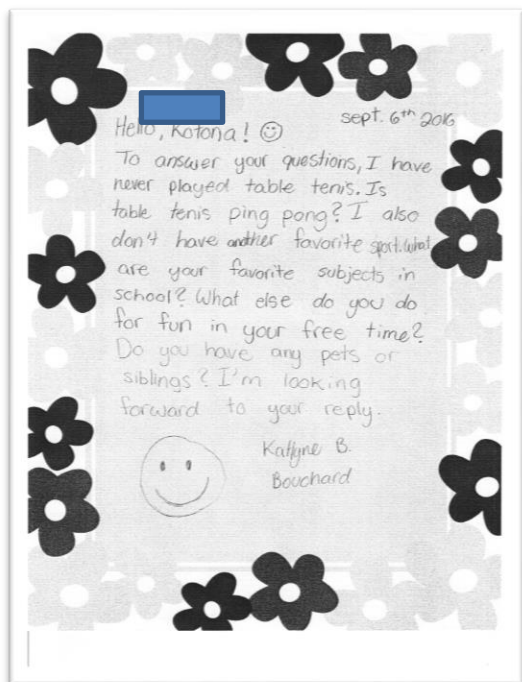 sept. 6th 2016
Hello, Kotona! ☺
To answer your questions, I have
never played table tenis. Is
table tenis ping pong? I also
don't have another favorite sport. What
are your favorite subjects in
school? What else do you do
for fun in your free time?
Do you have any pets or
siblings? I'm looking
forward to your reply.
Katlyne B.
Bouchard